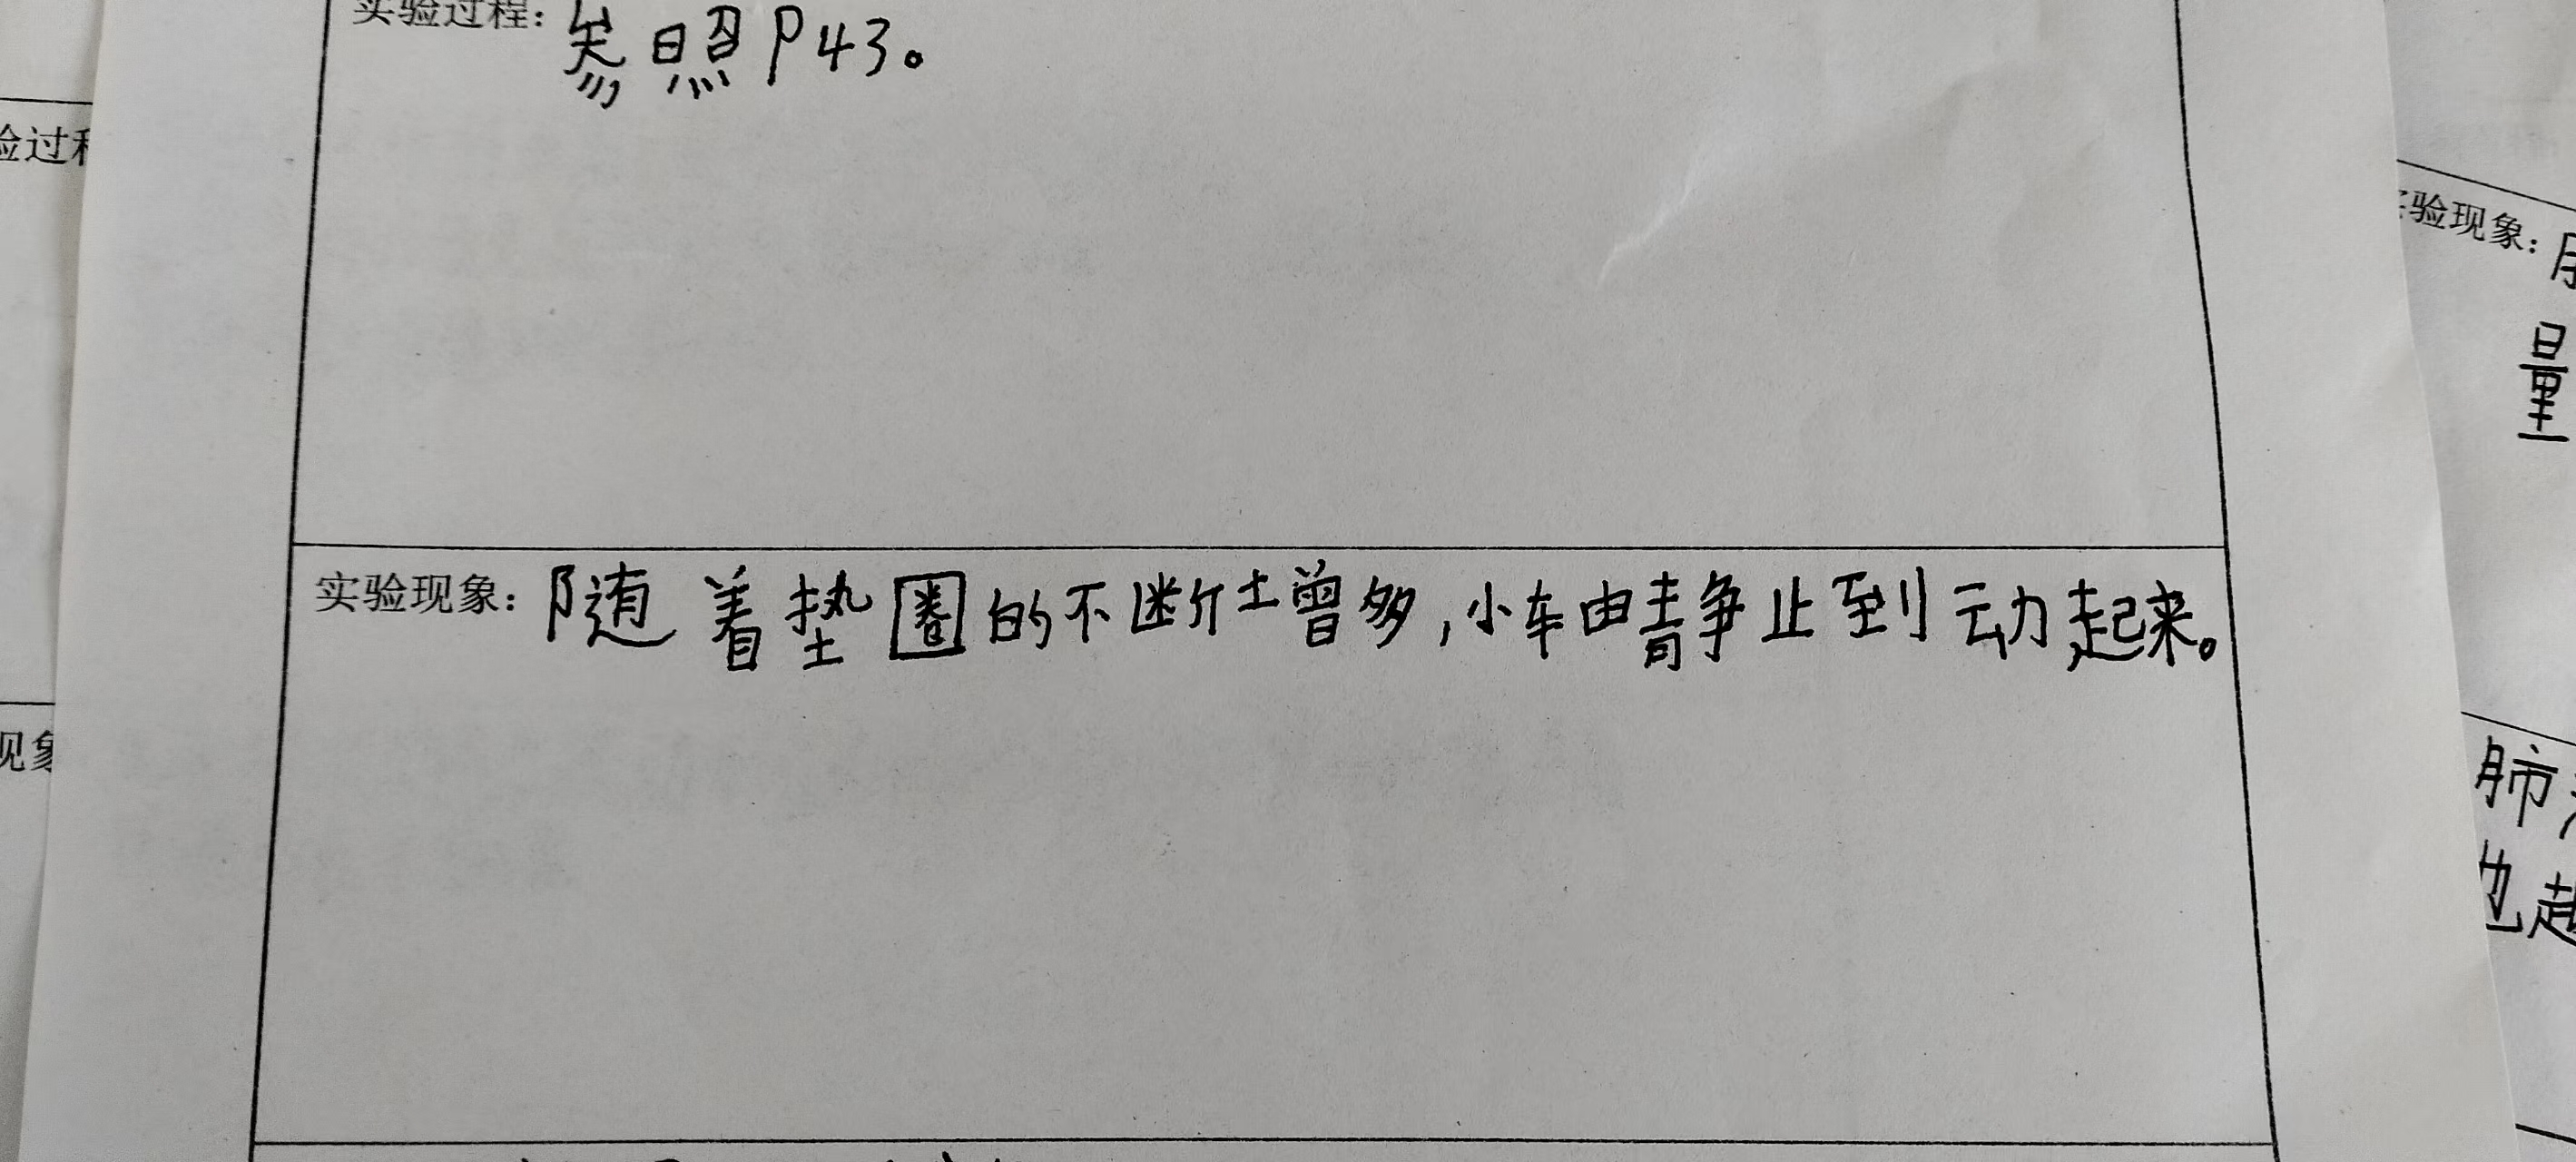 实验过程：参照P43。
验过程
实验现象：随着垫圈的不断增多，小车由静止到动起来。
现象
实验现象：
量
肺
也越